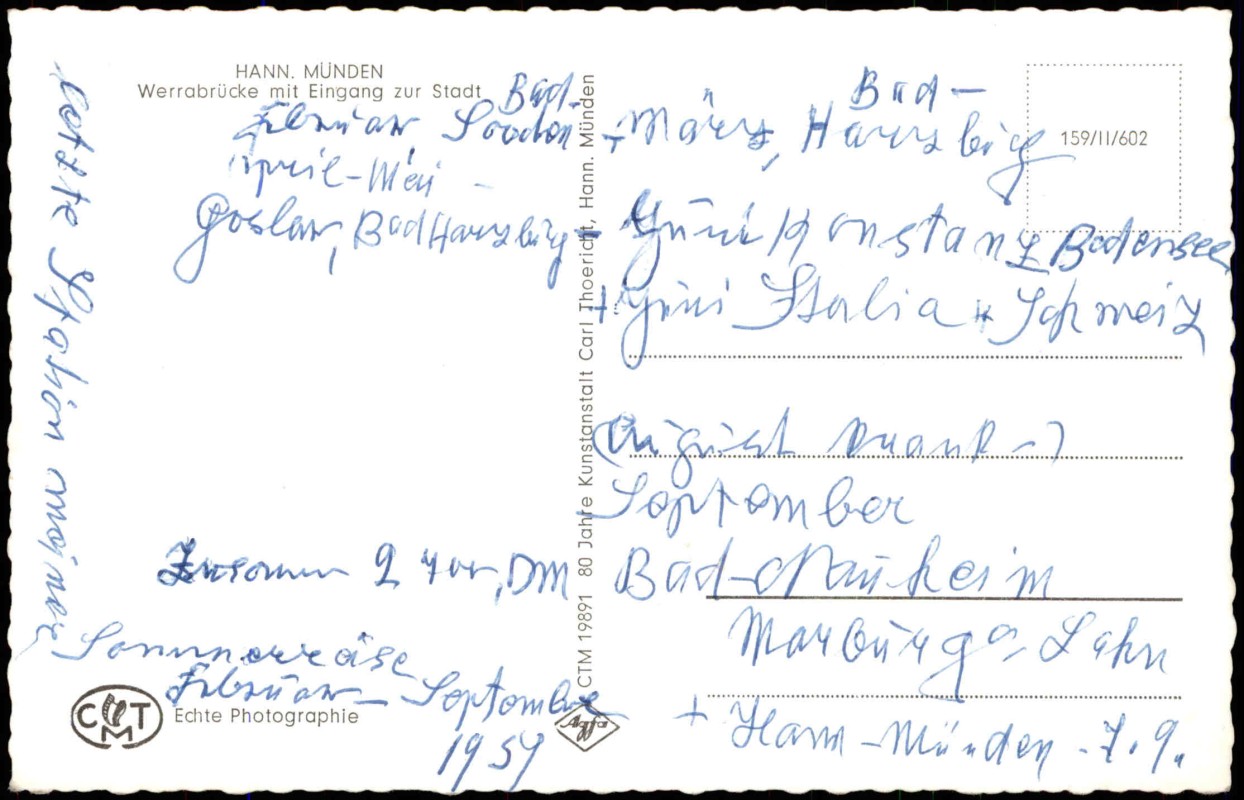 HANN. MÜNDEN
Werrabrücke mit Eingang zur Stadt
Bad-
Februar, Sooden
April-Mai -
Goslar, Bad Harzburg
Zusammen 2 DM
letzte Station meiner
Sommerreise
Februar - September
1959
CMT
Echte Photographie
CTM 19891 80 Jahre Kunstanstalt Carl Thoericht, Hann. Münden
Agfa
159/II/602
Bad -
+ März, Harzburg
+ Juni Konstanz Bodensee
+ Juni Italia + Schweiz
(August krank -)
September
Bad-Nauheim
Marburg a. Lahn
+ Hann-Münden - 7.9.